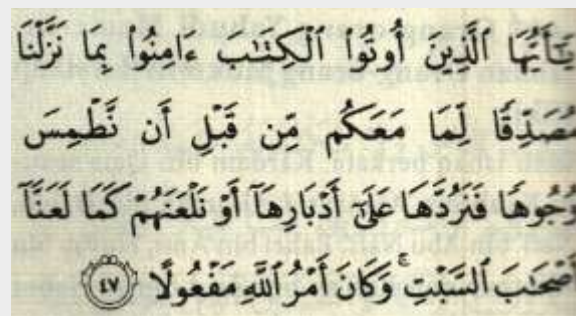 يَٰٓأَيُّهَا ٱلَّذِينَ أُوتُوا۟ ٱلْكِتَٰبَ ءَامِنُوا۟ بِمَا نَزَّلْنَا
مُصَدِّقًا لِّمَا مَعَكُم مِّن قَبْلِ أَن نَّطْمِسَ
وُجُوهًا فَنَرُدَّهَا عَلَىٰٓ أَدْبَارِهَآ أَوْ نَلْعَنَهُمْ كَمَا لَعَنَّآ
أَصْحَٰبَ ٱلسَّبْتِ ۚ وَكَانَ أَمْرُ ٱللَّهِ مَفْعُولًا ٤٧